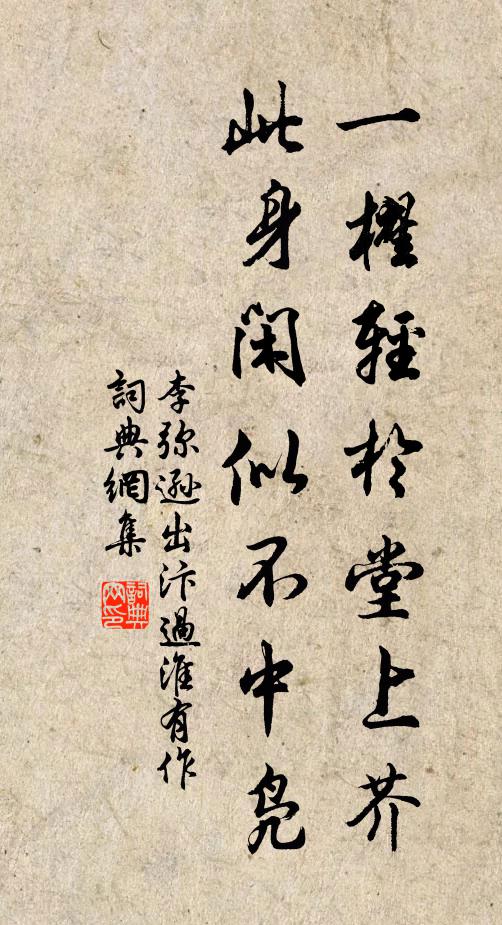 一櫂輕於堂上芥
此身閑似不中鳧
李彌遜出汴過淮有作
詞典網集
詞典網印